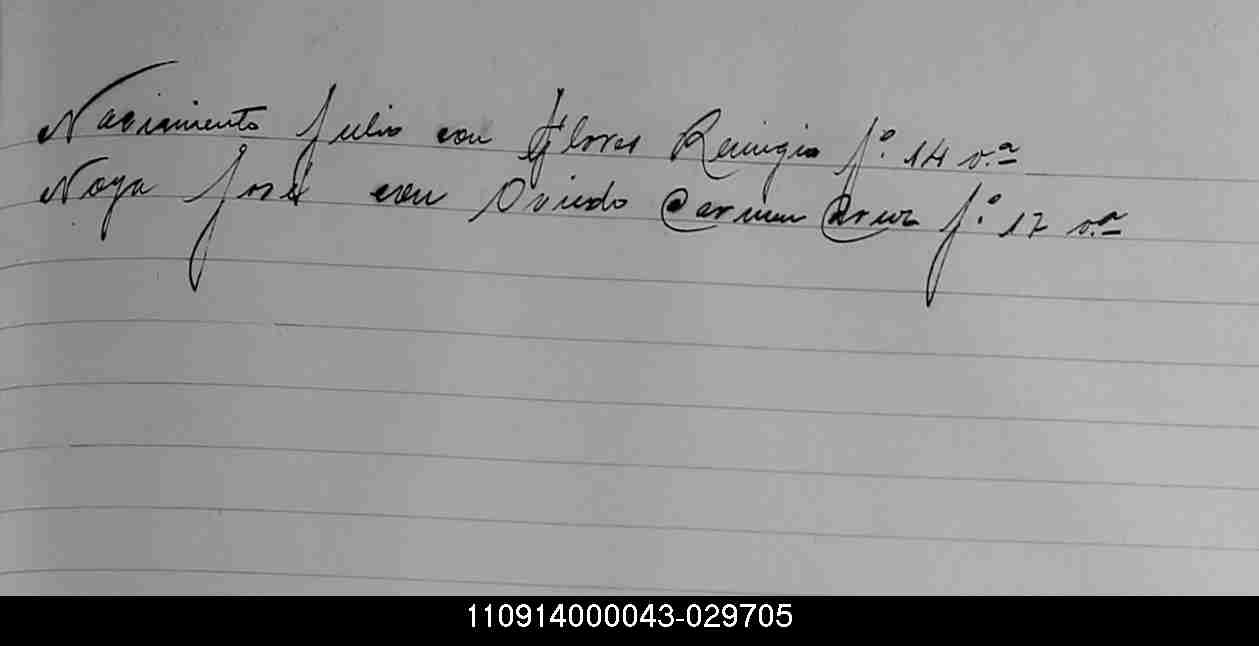 Nacimiento Julio con Flores Remigia fº. 14 v.ª
Noya José con Oviedo Carmen Cruz fº. 17 v.ª
110914000043-029705